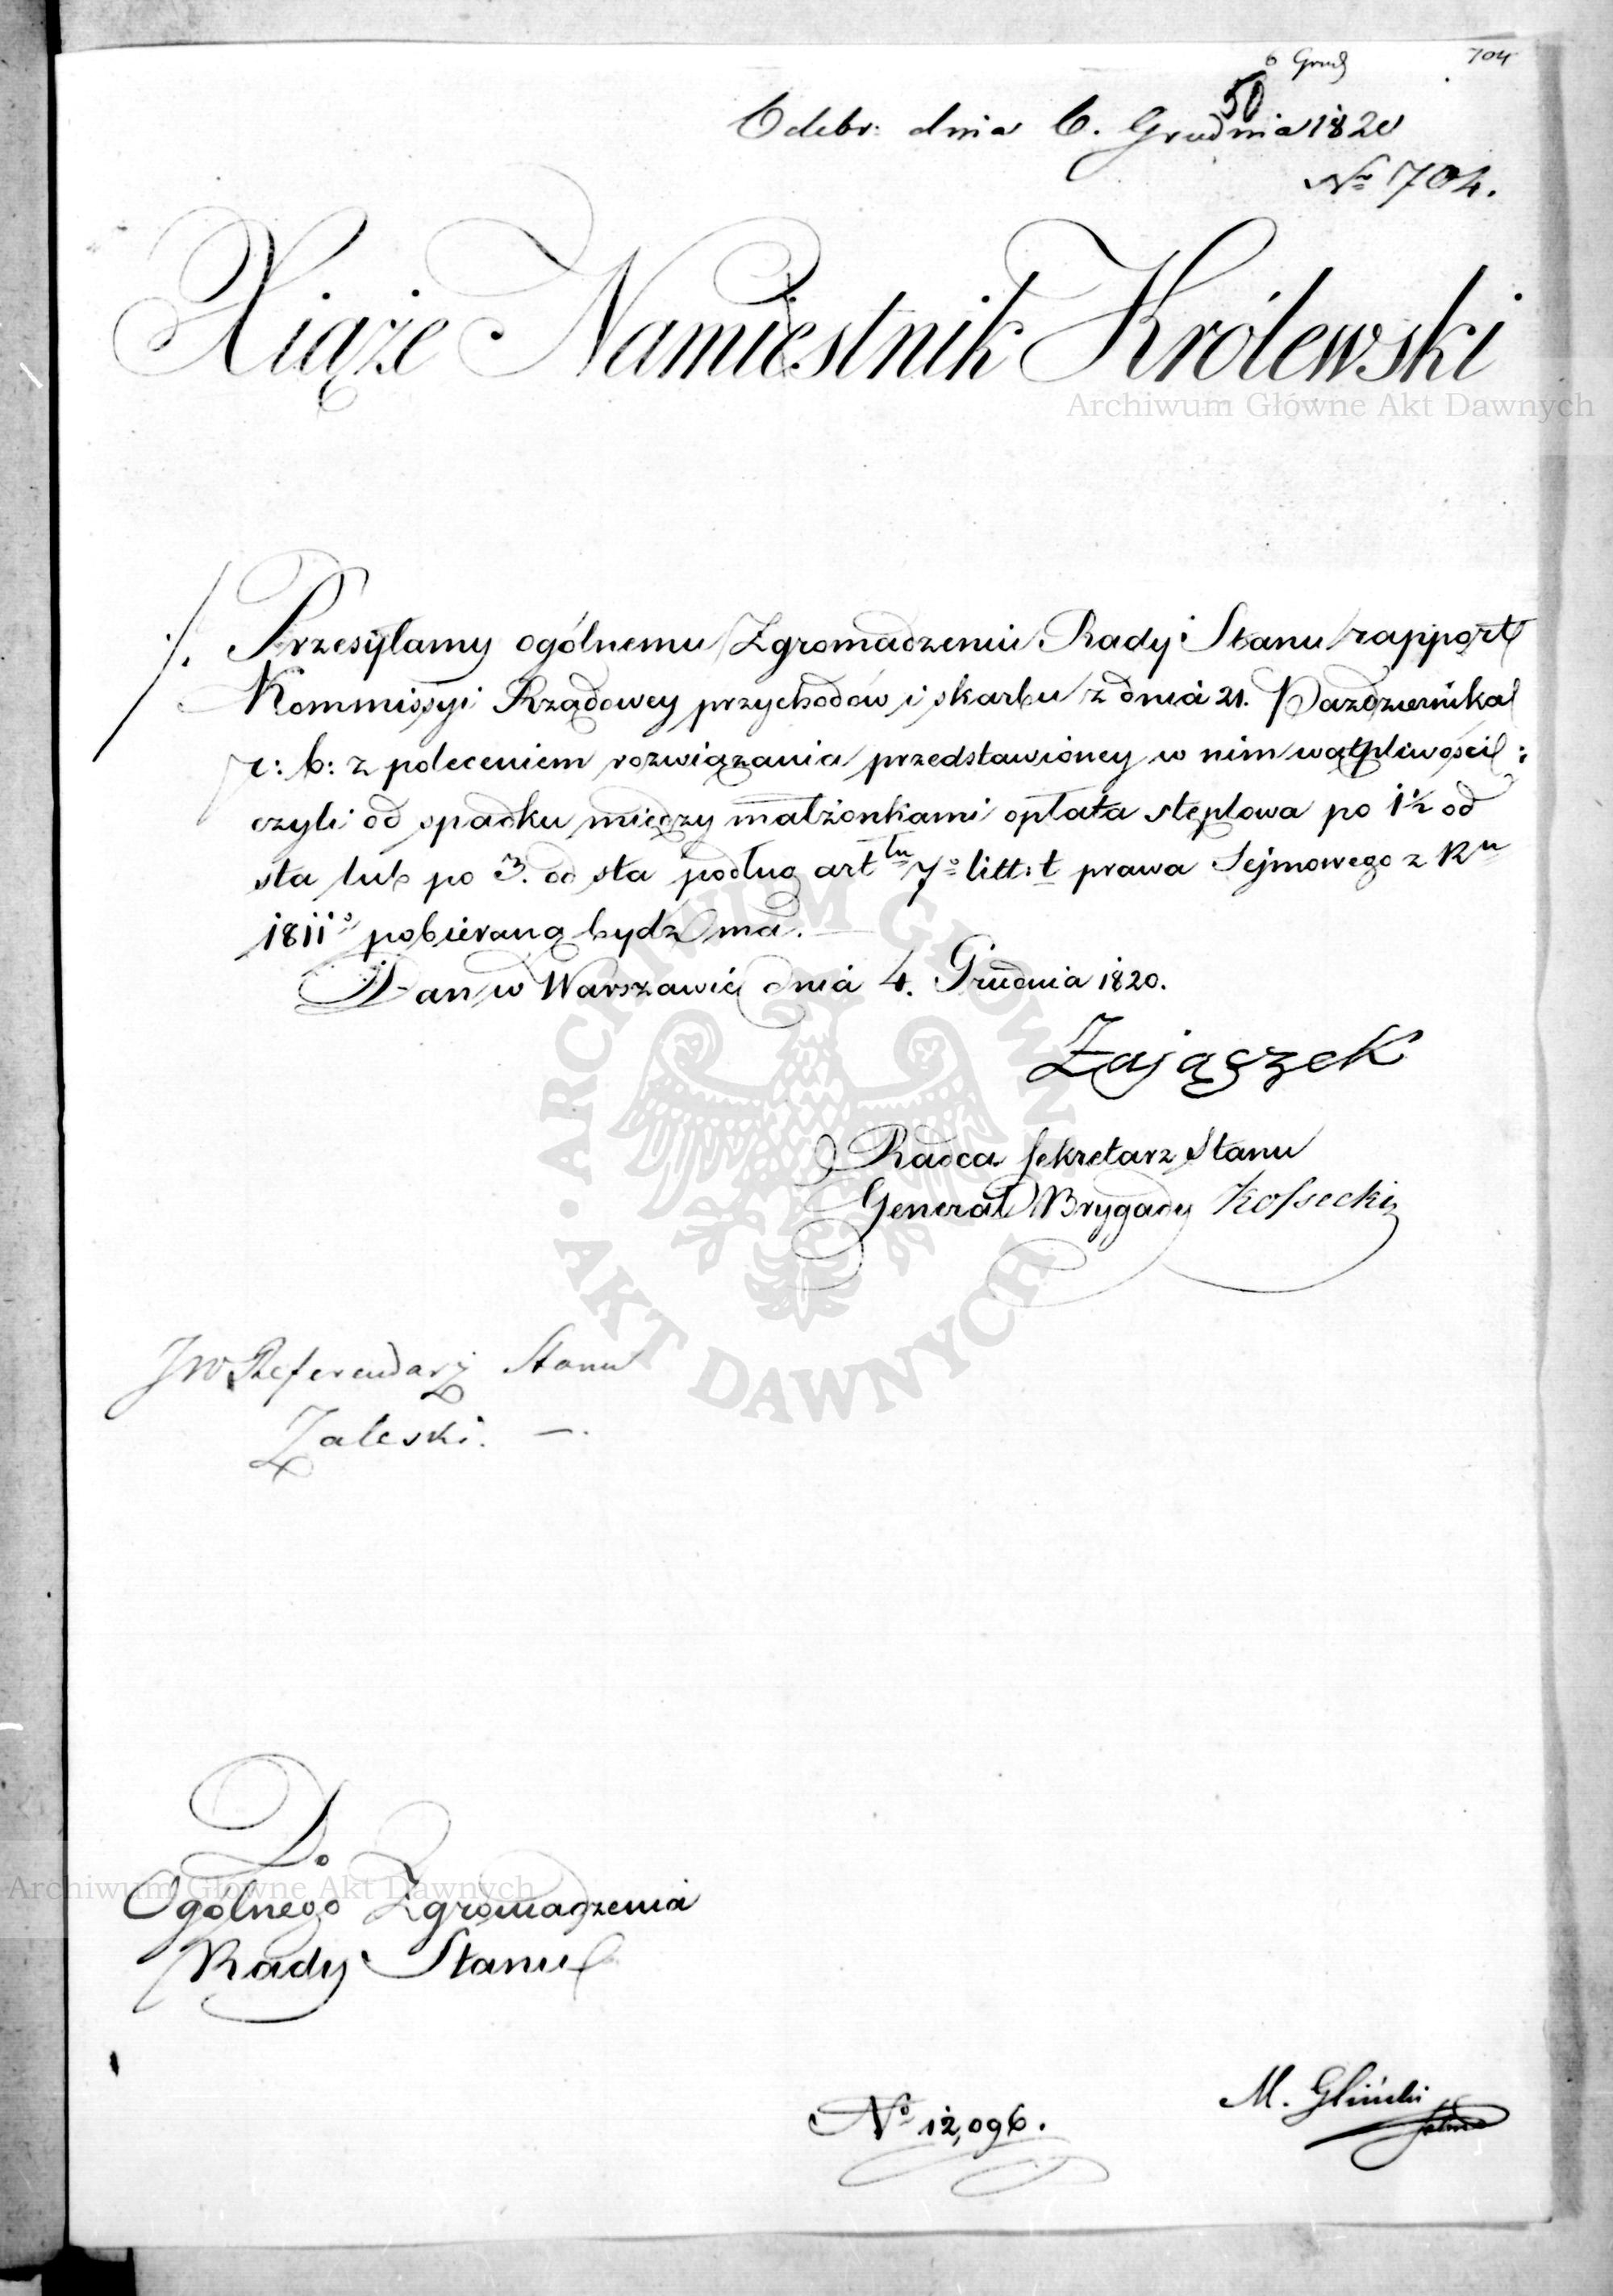 6 Grud 704
50
Odebr: dnia 6. Grudnia 1820
No 704.
Xiąże Namiestnik Królewski
Archiwum Główne Akt Dawnych
Przesyłamy ogólnemu Zgromadzeniu Rady Stanu rapport
Kommissyi Rządowey przychodów i skarbu z dnia 21. Pazdziernika
r: b: z poleceniem rozwiązania przedstawioney w nim wątpliwości:
czyli od spadku między małżonkami opłata steplowa po 1½ od
sta lub po 3. od sta podług art łu 7o litt: t prawa Sejmowego z Ru
1811o pobieraną bydz ma.
Dan w Warszawie dnia 4. Grudnia 1820.
Zajączek
Radca Sekretarz Stanu
Generał Brygady Kossecki
ARCHIWUM GŁÓWNE AKT DAWNYCH
JW Referendarz Stanu
Zaleski. —
Do
Archiwum Główne Akt Dawnych
Ogólnego Zgromadzenia
Rady Stanu
No 12,096.
M. Gliński